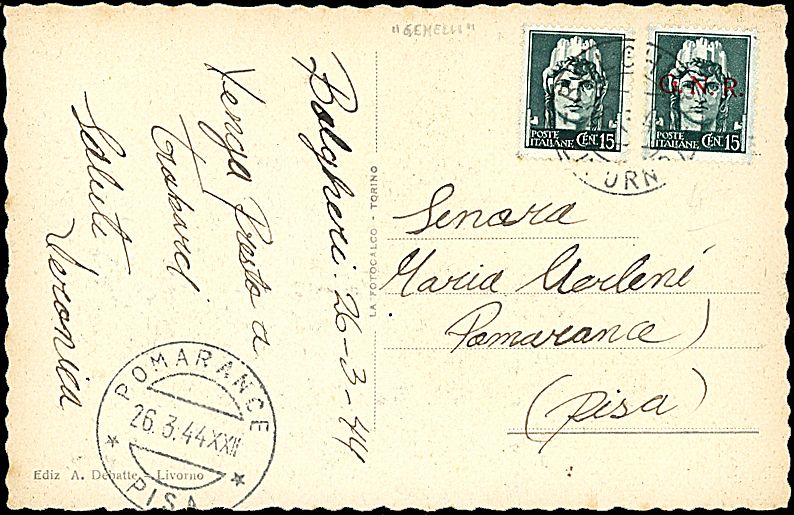 "GEMELLI"
Bolgheri. 26-3-44
Venga Presto a
Trovarci
Saluti
Veronica
LA FOTOCALCO - TORINO
POSTE ITALIANE CEN. 15
POSTE ITALIANE CEN. 15
G.N.R.
Senora
Maria
Pomarance)
(Pisa)
POMARANCE
26.3.44 XXII
PISA
Ediz A. Debatte - Livorno